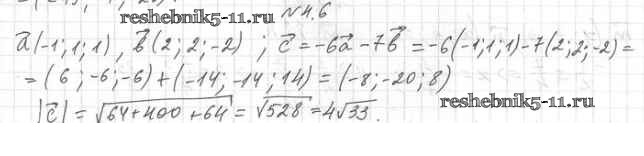 reshebnik5-11.ru
N4.6
a⃗(-1;1;1), b⃗(2;2;-2) ; c⃗=-6a⃗-7b⃗=-6(-1;1;1)-7(2;2;-2)=
=(6;-6;-6)+(-14;-14;14)=(-8;-20;8)
|c⃗|=√64+400+64=√528=4√33.
reshebnik5-11.ru